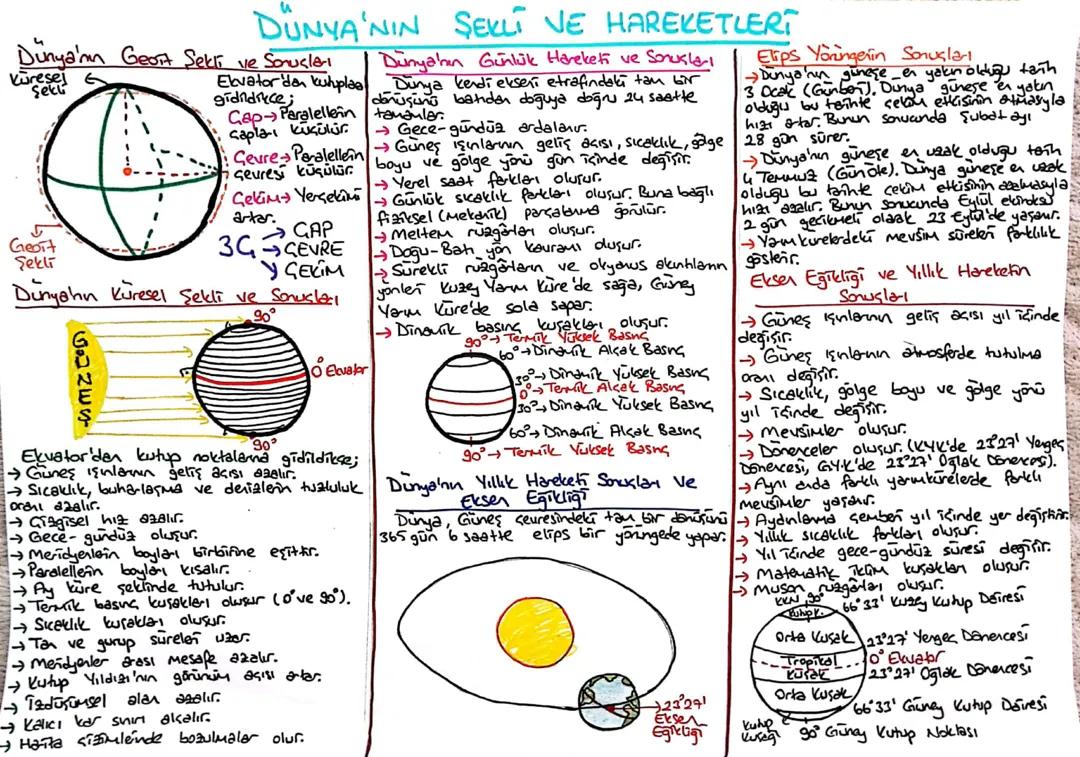 DÜNYA'NIN ŞEKLİ VE HAREKETLERİ
Dünya'nın Geoit Şekli ve Sonuçları
Küresel
Şekli
Ekvator'dan kutuplara
gidildikçe;
Çap → Paralellerin
çapları küçülür.
Çevre → Paralellerin
çevresi küçülür.
Çekim → Yerçekimi
artar.
3Ç → ÇAP
→ ÇEVRE
→ ÇEKİM
Geoit
Şekli
Dünya'nın Küresel Şekli ve Sonuçları
GÜNEŞ
90°
0° Ekvator
90°
Ekvator'dan kutup noktalarına gidildikçe;
→ Güneş ışınlarının geliş açısı azalır.
→ Sıcaklık, buharlaşma ve denizlerin tuzluluk
oranı azalır.
→ Çizgisel hız azalır.
→ Gece-gündüz oluşur.
→ Meridyenlerin boyları birbirine eşittir.
→ Paralellerin boyları kısalır.
→ Ay küre şeklinde tutulur.
→ Termik basınç kuşakları oluşur (0° ve 90°).
→ Sıcaklık kuşakları oluşur.
→ Tan ve gurup süreleri uzar.
→ Meridyenler arası mesafe azalır.
→ Kutup Yıldızı'nın görünüm açısı artar.
→ İzdüşümsel alan azalır.
→ Kalıcı kar sınırı alçalır.
→ Harita çizimlerinde bozulmalar olur.
Dünya'nın Günlük Hareketi ve Sonuçları
Dünya kendi ekseni etrafındaki tam bir
dönüşünü batıdan doğuya doğru 24 saatte
tamamlar.
→ Gece-gündüz ardalanır.
→ Güneş ışınlarının geliş açısı, sıcaklık, gölge
boyu ve gölge yönü gün içinde değişir.
→ Yerel saat farkları oluşur.
→ Günlük sıcaklık farkları oluşur. Buna bağlı
fiziksel (mekanik) parçalanma görülür.
→ Meltem rüzgarları oluşur.
→ Doğu-Batı yön kavramı oluşur.
→ Sürekli rüzgarların ve okyanus akıntılarının
yönleri Kuzey Yarım Küre'de sağa, Güney
Yarım Küre'de sola sapar.
→ Dinamik basınç kuşakları oluşur.
90° → Termik Yüksek Basınç
60° → Dinamik Alçak Basınç
30° → Dinamik Yüksek Basınç
0° → Termik Alçak Basınç
30° → Dinamik Yüksek Basınç
60° → Dinamik Alçak Basınç
90° → Termik Yüksek Basınç
Dünya'nın Yıllık Hareketi Sonuçları ve
Eksen Eğikliği
Dünya, Güneş çevresindeki tam bir dönüşünü
365 gün 6 saatte elips bir yörüngede yapar.
→ 23°27'
Eksen
Eğikliği
Elips Yörüngenin Sonuçları
→ Dünya'nın güneşe en yakın olduğu tarih
3 Ocak (Günberi). Dünya güneşe en yakın
olduğu bu tarihte çekim etkisinin artmasıyla
hızı artar. Bunun sonucunda Şubat ayı
28 gün sürer.
→ Dünya'nın güneşe en uzak olduğu tarih
4 Temmuz (Günöte). Dünya güneşe en uzak
olduğu bu tarihte çekim etkisinin azalmasıyla
hızı azalır. Bunun sonucunda Eylül ekinoksu
2 gün gecikmeli olarak 23 Eylül'de yaşanır.
→ Yarım kürelerdeki mevsim süreleri farklılık
gösterir.
Eksen Eğikliği ve Yıllık Hareketin
Sonuçları
→ Güneş ışınlarının geliş açısı yıl içinde
değişir.
→ Güneş ışınlarının atmosferde tutulma
oranı değişir.
→ Sıcaklık, gölge boyu ve gölge yönü
yıl içinde değişir.
→ Mevsimler oluşur.
→ Dönenceler oluşur. (KYK'de 23°27' Yengeç
Dönencesi, GYK'de 23°27' Oğlak Dönencesi).
→ Aynı anda farklı yarımkürelerde farklı
mevsimler yaşanır.
→ Aydınlanma çemberi yıl içinde yer değiştirir.
→ Yıllık sıcaklık farkları oluşur.
→ Yıl içinde gece-gündüz süresi değişir.
→ Matematik iklim kuşakları oluşur.
→ Muson rüzgarları oluşur.
KKN 90°
Kutup K.
66°33' Kuzey Kutup Dairesi
Orta Kuşak
23°27' Yengeç Dönencesi
Tropikal
Kuşak
0° Ekvator
23°27' Oğlak Dönencesi
Orta Kuşak
66°33' Güney Kutup Dairesi
Kutup
Kuşağı
90° Güney Kutup Noktası